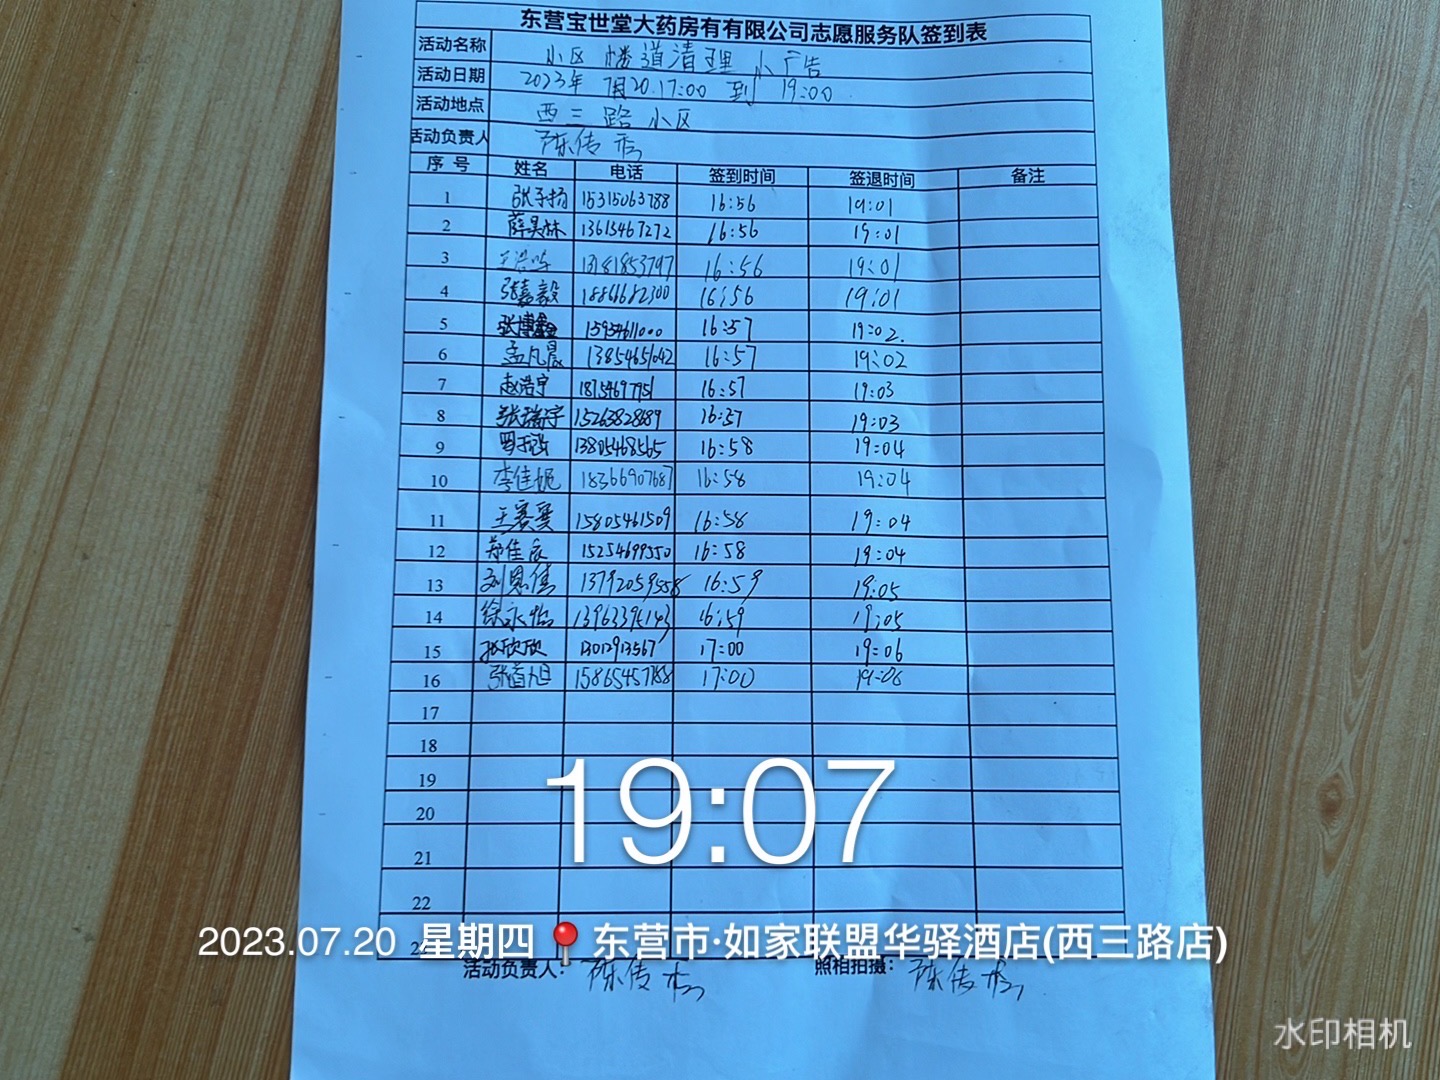 东营宝世堂大药房有有限公司志愿服务队签到表
活动名称 小区 楼道清理 小广告
活动日期 2023年 7月20.17:00 到 19:00
活动地点 西三路小区
活动负责人 陈传秀
序号 姓名 电话 签到时间 签退时间 备注
1 张子扬 15315063788 16:56 19:01
2 薛昊林 13615467272 16:56 19:01
3 13181853797 16:56 19:01
4 张嘉毅 18861682300 16:56 19:01
5 张博鑫 15954611000 16:57 19:02.
6 孟凡晨 13854651642 16:57 19:02
7 赵浩宇 18754697951 16:57 19:03
8 张瑞宇 15263828689 16:57 19:03
9 13805468565 16:58 19:04
10 李佳妮 18366907687 16:58 19:04
11 15805461509 16:58 19:04
12 15254699550 16:58 19:04
13 刘恩佳 13792059558 16:59 19:05
14 徐永怡 13963395143 16:59 19:05
15 张欣欣 13012913567 17:00 19:06
16 15865457188 17:00 19:06
17
18
19
20
21
22
19:07
2023.07.20 星期四 东营市·如家联盟华驿酒店(西三路店)
活动负责人: 陈传秀 照相拍摄: 陈传秀
水印相机